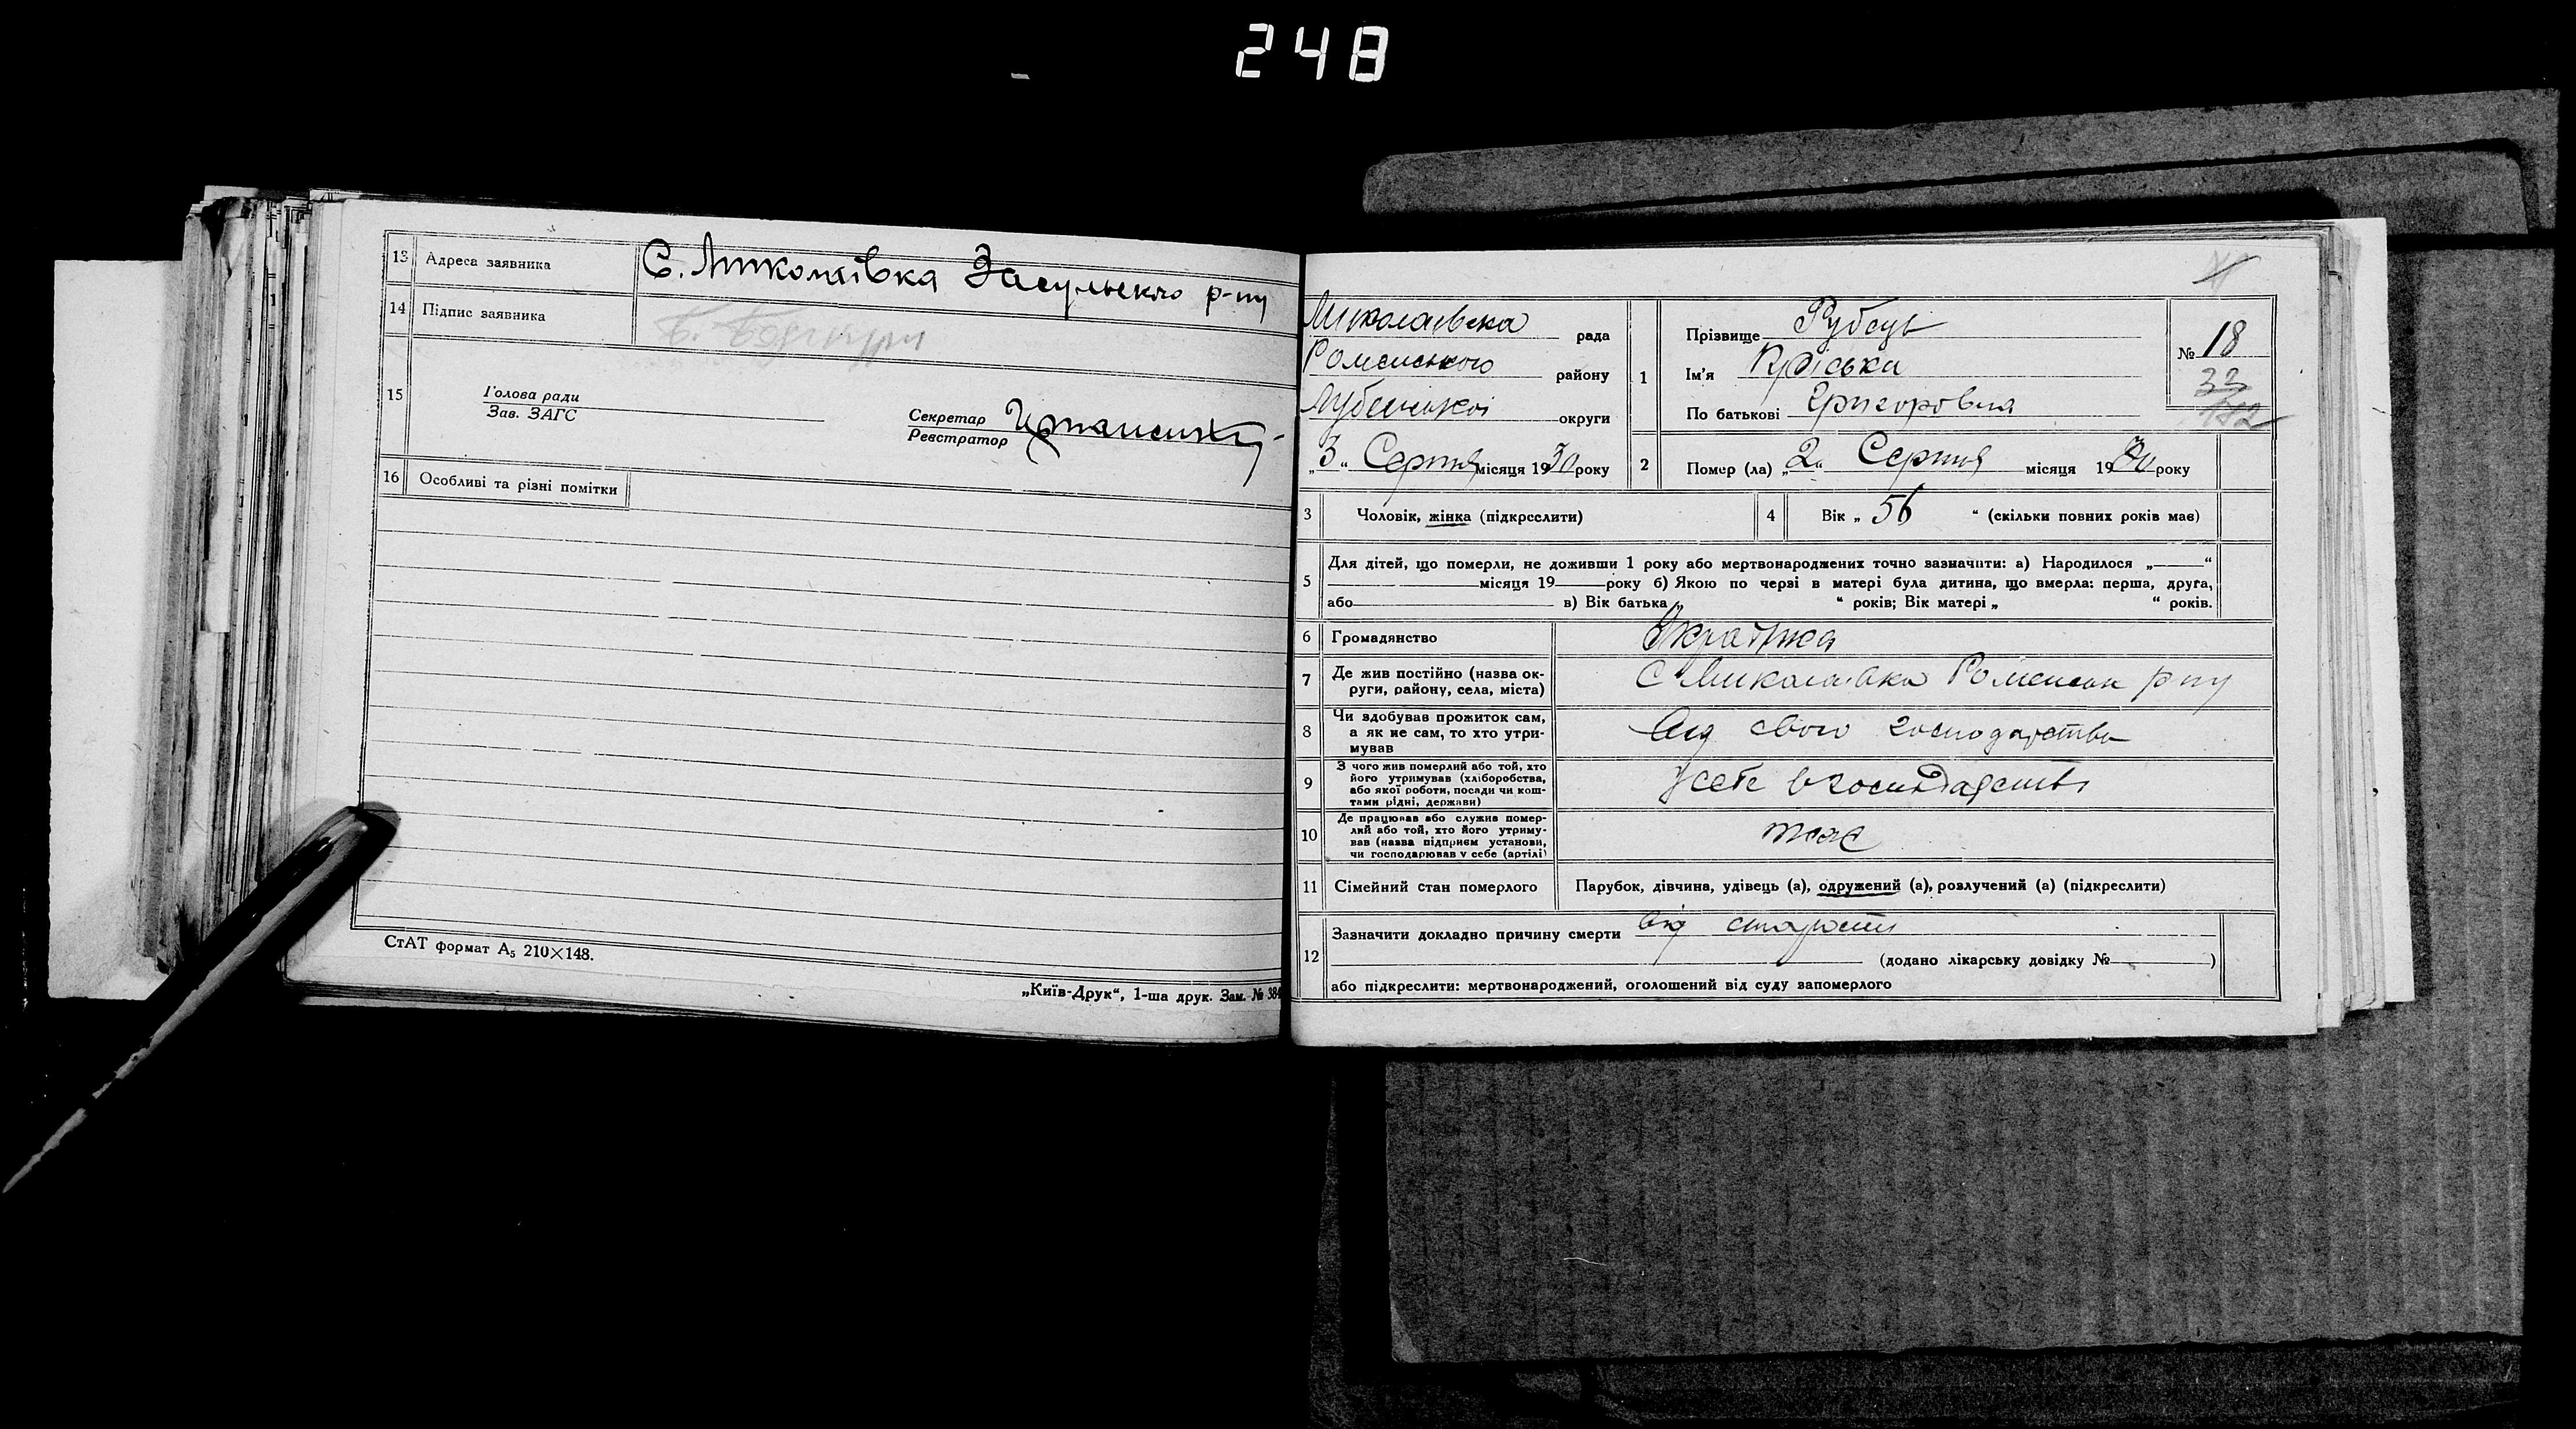 248
13 Адреса заявника С. Миколаївка Засульского р-ну
14 Підпис заявника
15 Голова ради
Зав. ЗАГС
Секретар
Реєстратор
16 Особливі та різні помітки
СтАТ формат А5 210×148.
„Київ-Друк“, 1-ша друк. Зам. № 384
Миколаївска рада
Роменського району
Лубенської округи
„3“ Серпня місяця 1930 року
1 Прізвище Рубець
Ім'я
По батькові Григоровна
№ 18
33
2 Помер (ла) „2“ Серпня місяця 1930 року
3 Чоловік, жінка (підкреслити)
4 Вік „56“ (скільки повних років має)
5 Для дітей, що померли, не доживши 1 року або мертвонароджених точно зазначити: а) Народилося „ “
місяця 19 року б) Якою по черзі в матері була дитина, що вмерла: перша, друга,
або в) Вік батька „ “ років; Вік матері „ “ років.
6 Громадянство Українка
7 Де жив постійно (назва ок-
руги, району, села, міста)
С Миколаівка Роменськ р ну
8 Чи здобував прожиток сам,
а як не сам, то хто утри-
мував
Від свого господарства
9 З чого жив померлий або той, хто
його утримував (хліборобства,
або якої роботи, посади чи кош-
тами рідні, держави)
У себе в господарстві
10 Де працював або служив помер-
лий або той, хто його утриму-
вав (назва підприєм установи,
чи господарював у себе (артілі)
теж
11 Сімейний стан померлого Парубок, дівчина, удівець (а), одружений (а), розлучений (а) (підкреслити)
12 Зазначити докладно причину смерти від старости
(додано лікарську довідку № )
або підкреслити: мертвонароджений, оголошений від суду запомерлого